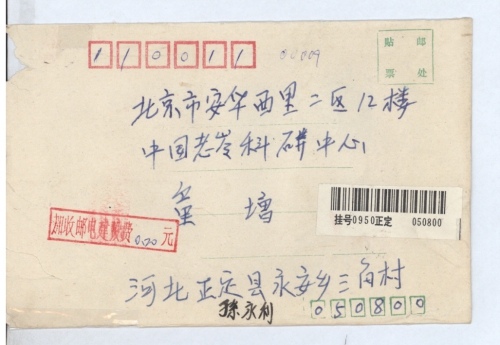 110011
贴 邮
票 处
北京市安华西里二区12楼
中国老龄科研中心
增
挂号0950正定 050800
加收邮电建设费0.20元
河北正定县永安乡三角村
孫永利
050800